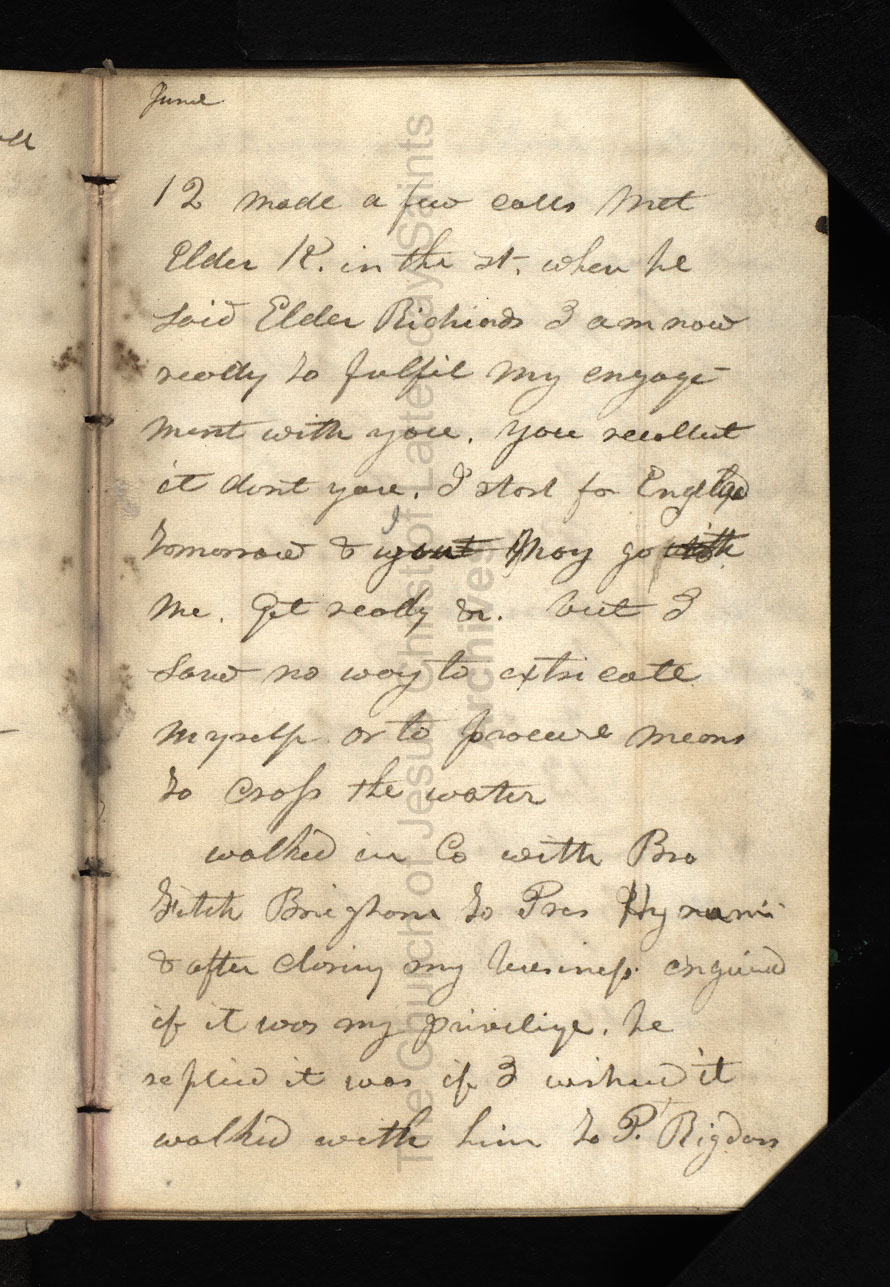 June
12 made a few calls Met
Elder K. in the st. when he
said Elder Richards I am now
ready to fulfil my engage-
ment with you. you recollect
it dont you. I start for England
tomorrow & I want may go with
me. Get ready &c. but I
saw no way to extricate
myself or to procure means
to cross the water
walked in Co with Bro
Fitch Brigham to Pres Hyrum's
& after closing my business enquired
if it was my privilige. he
replied it was if I wished it
walked with him to P. Rigdons
The Church of Jesus Christ of Latter-day Saints
Archives